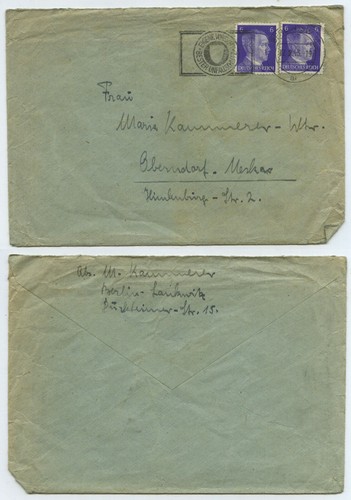 6 6
DEUTSCHES REICH DEUTSCHES REICH
Frau
Maria Kammerer-Wtw.
Oberndorf-Neckar
Hindenburg-Str. 2.
Abs. M. Kammerer
Berlin-Lankwitz
Str. 15.